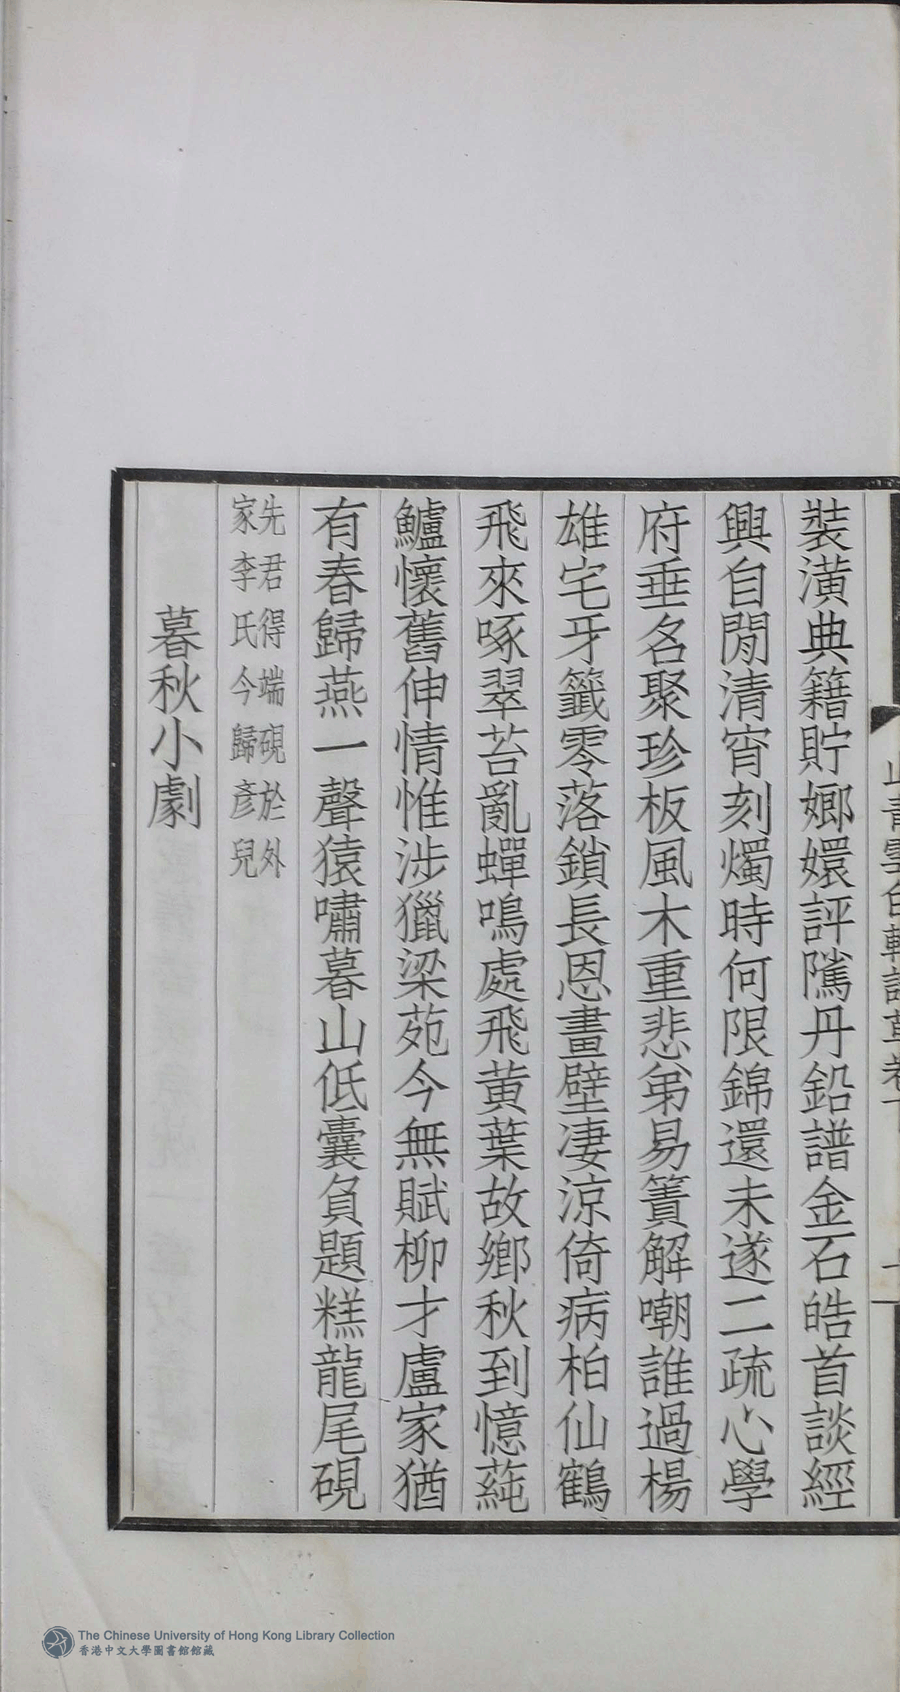 裝潢典籍貯嫏嬛評隲丹鉛譜金石皓首談經
興自閒清宵刻燭時何限錦還未遂二疏心學
府垂名聚珍板風木重悲弟易簀解嘲誰過楊
雄宅牙籤零落鎖長恩畫壁淒涼倚病柏仙鶴
飛來啄翠苔亂蟬鳴處飛黃葉故鄉秋到憶蒓
鱸懷舊伸情惟涉獵梁苑今無賦柳才盧家猶
有春歸燕一聲猿嘯暮山低囊負題糕龍尾硯
先君得端硯於外
家李氏今歸彥兒
暮秋小劇
The Chinese University of Hong Kong Library Collection
香港中文大學圖書館館藏